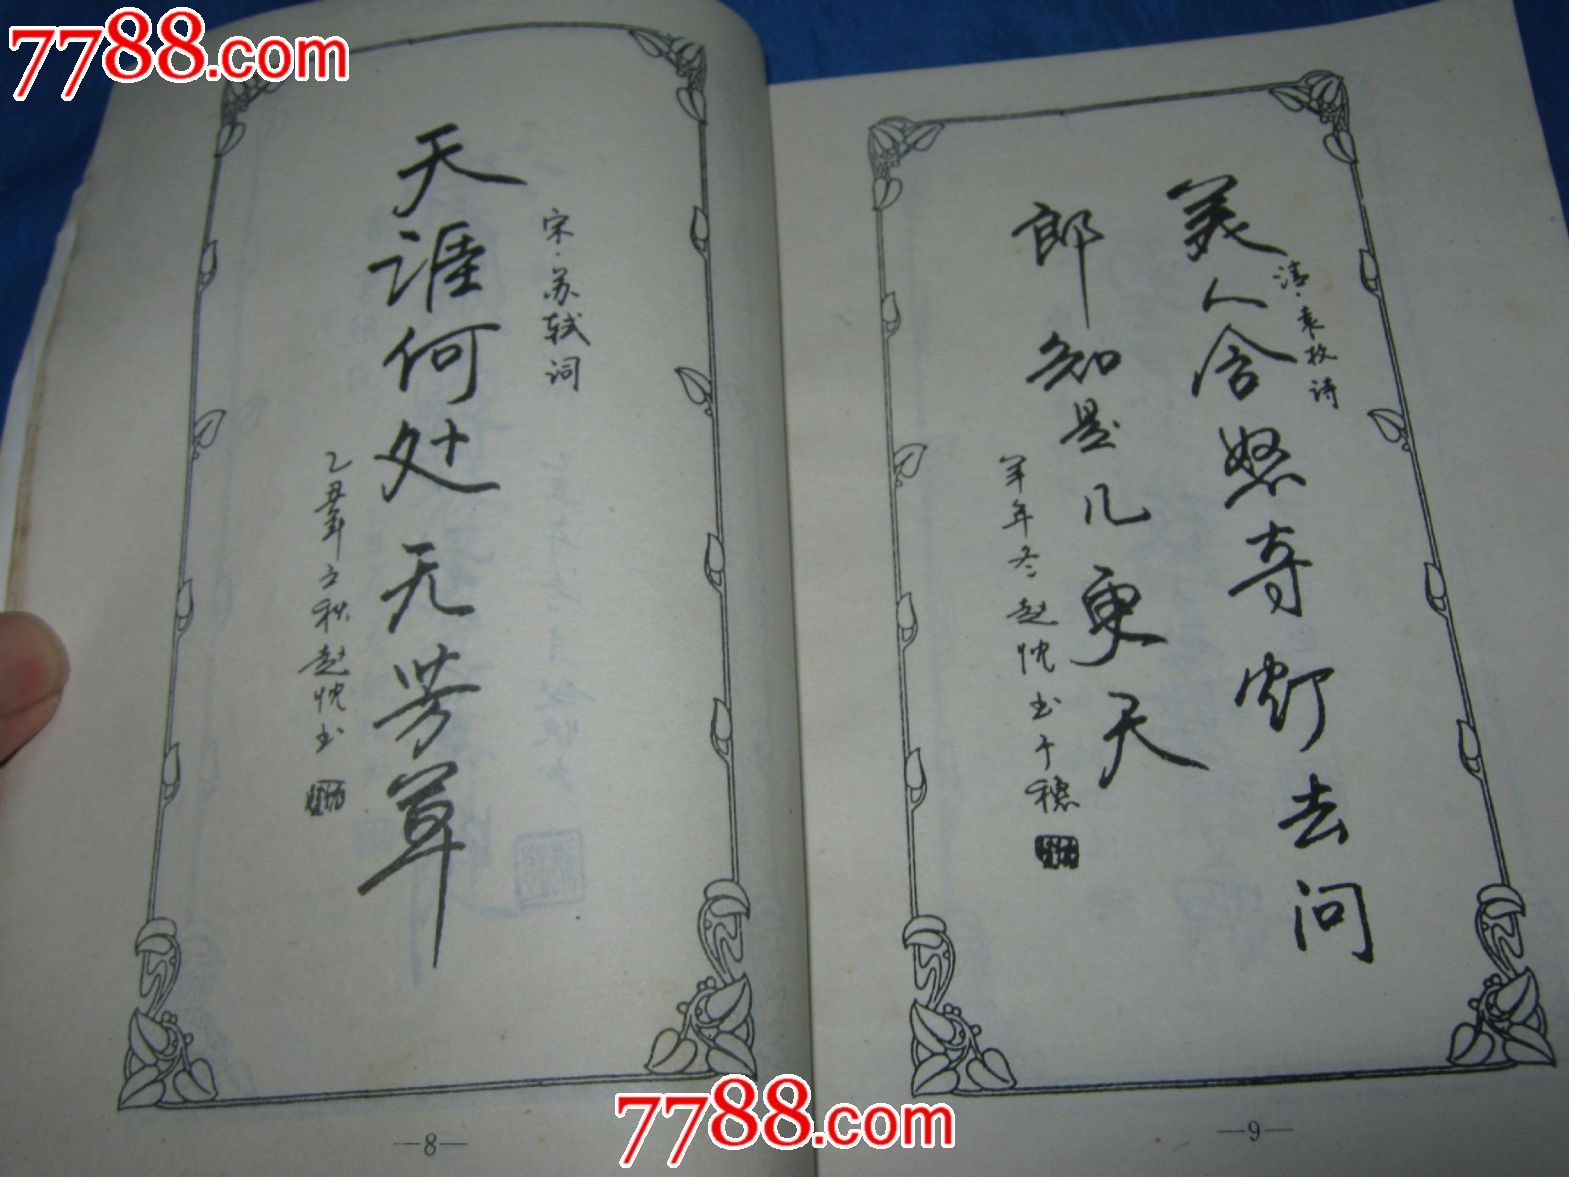 7788.com
宋·苏轼词
天涯何处无芳草
乙丑年立秋赵忱书
—8—
清·袁枚诗
美人含怒夺灯去问
郎知是几更天
羊年冬赵忱书于穗
—9—
7788.com